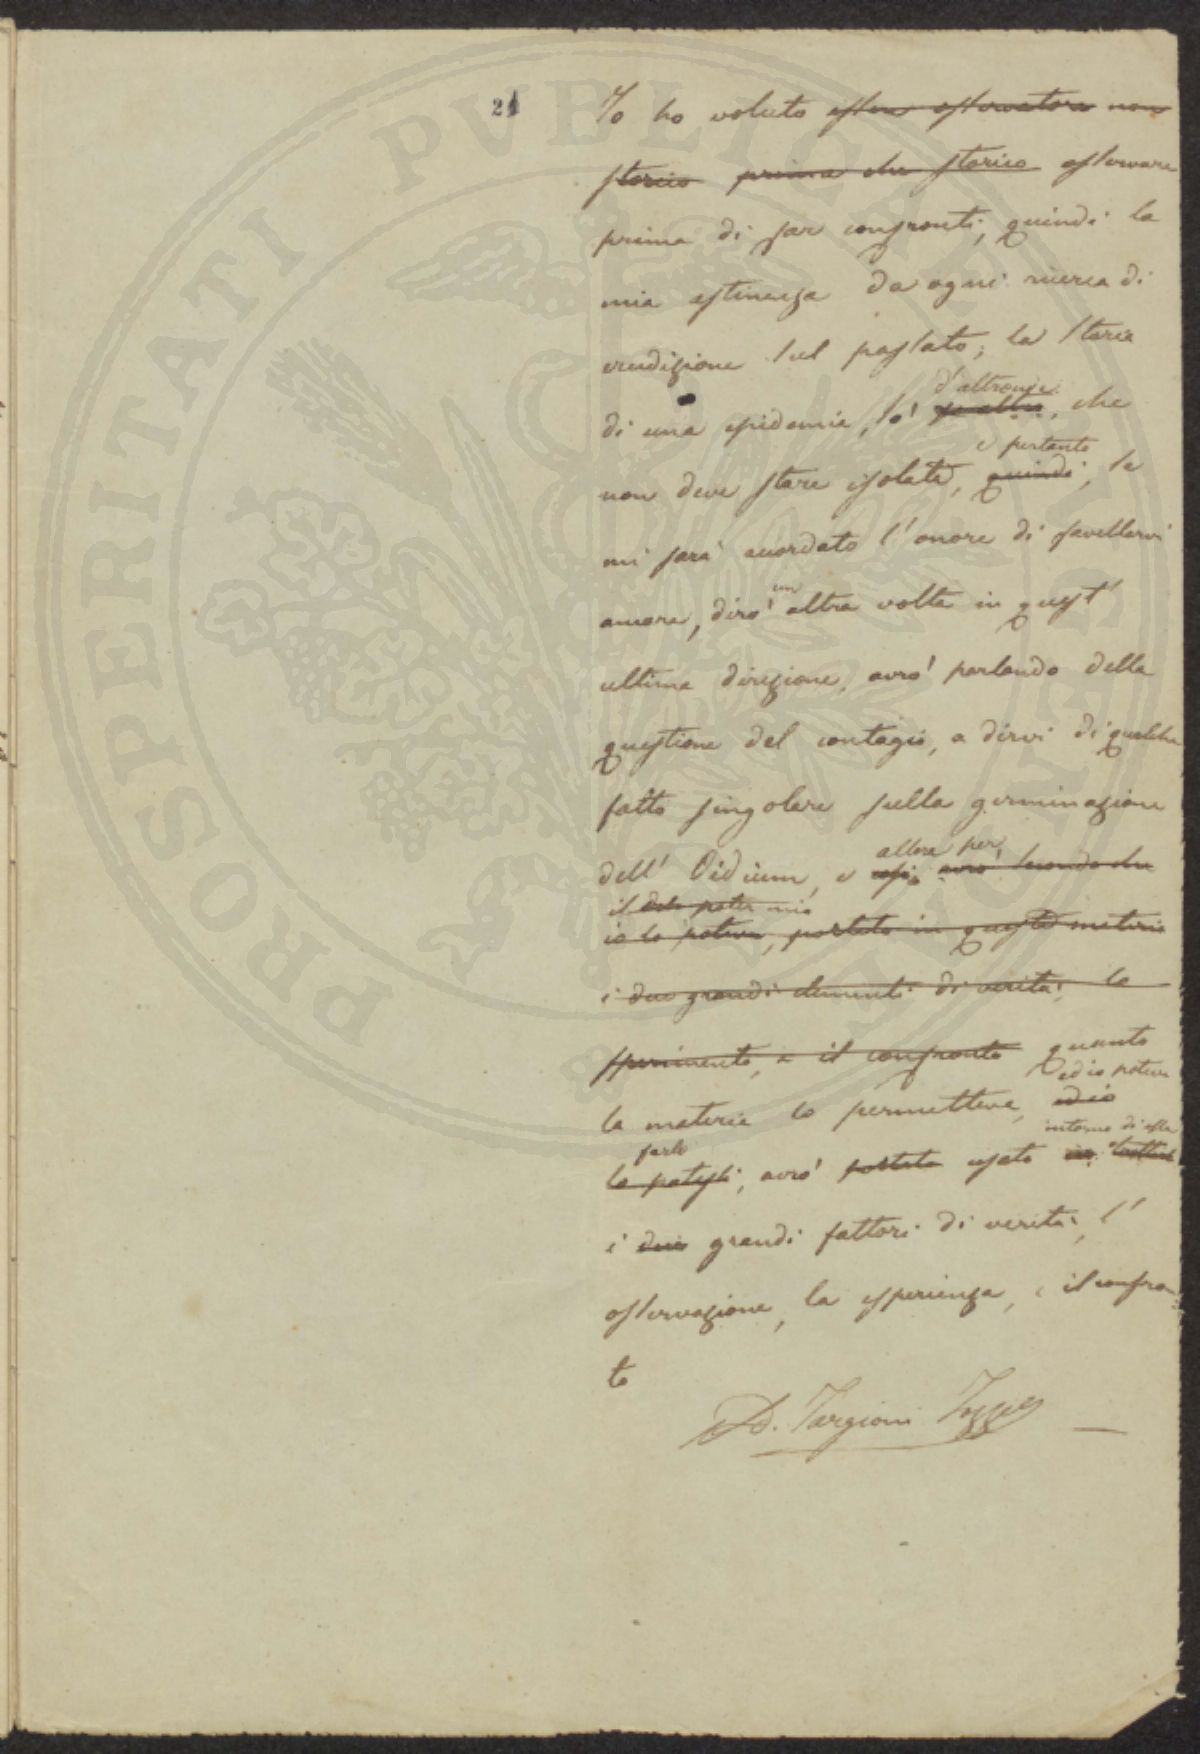 21
Io ho voluto esser osservatore non
storico prima che storico osservare
prima di far confronti, quindi la
mia astinenza da ogni ricerca di
erudizione sul passato; la storia
d'altronde
di una epidemia, so' che
e pertanto
non deve stare isolata, quindi, se
mi sarà accordato l'onore di favellarvi
un
ancora, dirò altra volta in quest'
ultima direzione, avrò parlando della
questione del contagio, a dirvi di qualche
fatto singolare sulla germinazione
allora per
dell' Oidium, e così avrò secondo che
il mio
io lo poteva, portato in questa materia
i due grandi elementi di verità, lo
sperimento, e il confronto quanto
ed io poteva
la materia lo permetteva, ed io
farlo
intorno di essa
lo potessi, avrò portato usato
i due grandi fattori di verità, l'
osservazione, la esperienza, e il confron-
to
Ad. Targioni Tozzetti
PVBLICAE
PROSPERITATI